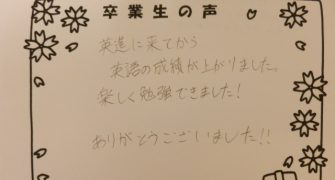 卒業生の声
英進に来てから
英語の成績が上がりました。
楽しく勉強できました!
ありがとうございました!!